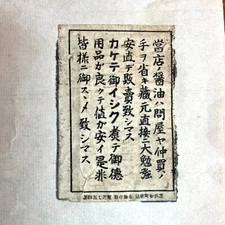 當店ノ醤油ハ問屋ヤ仲買ノ
手ヲ省キ藏元直接ニ大勉強
安直デ販賣致シマス
カケテ御イシク煮テ御德
用品ガ良クテ値ガ安イ是非
皆様ニ御スヽメ致シマス